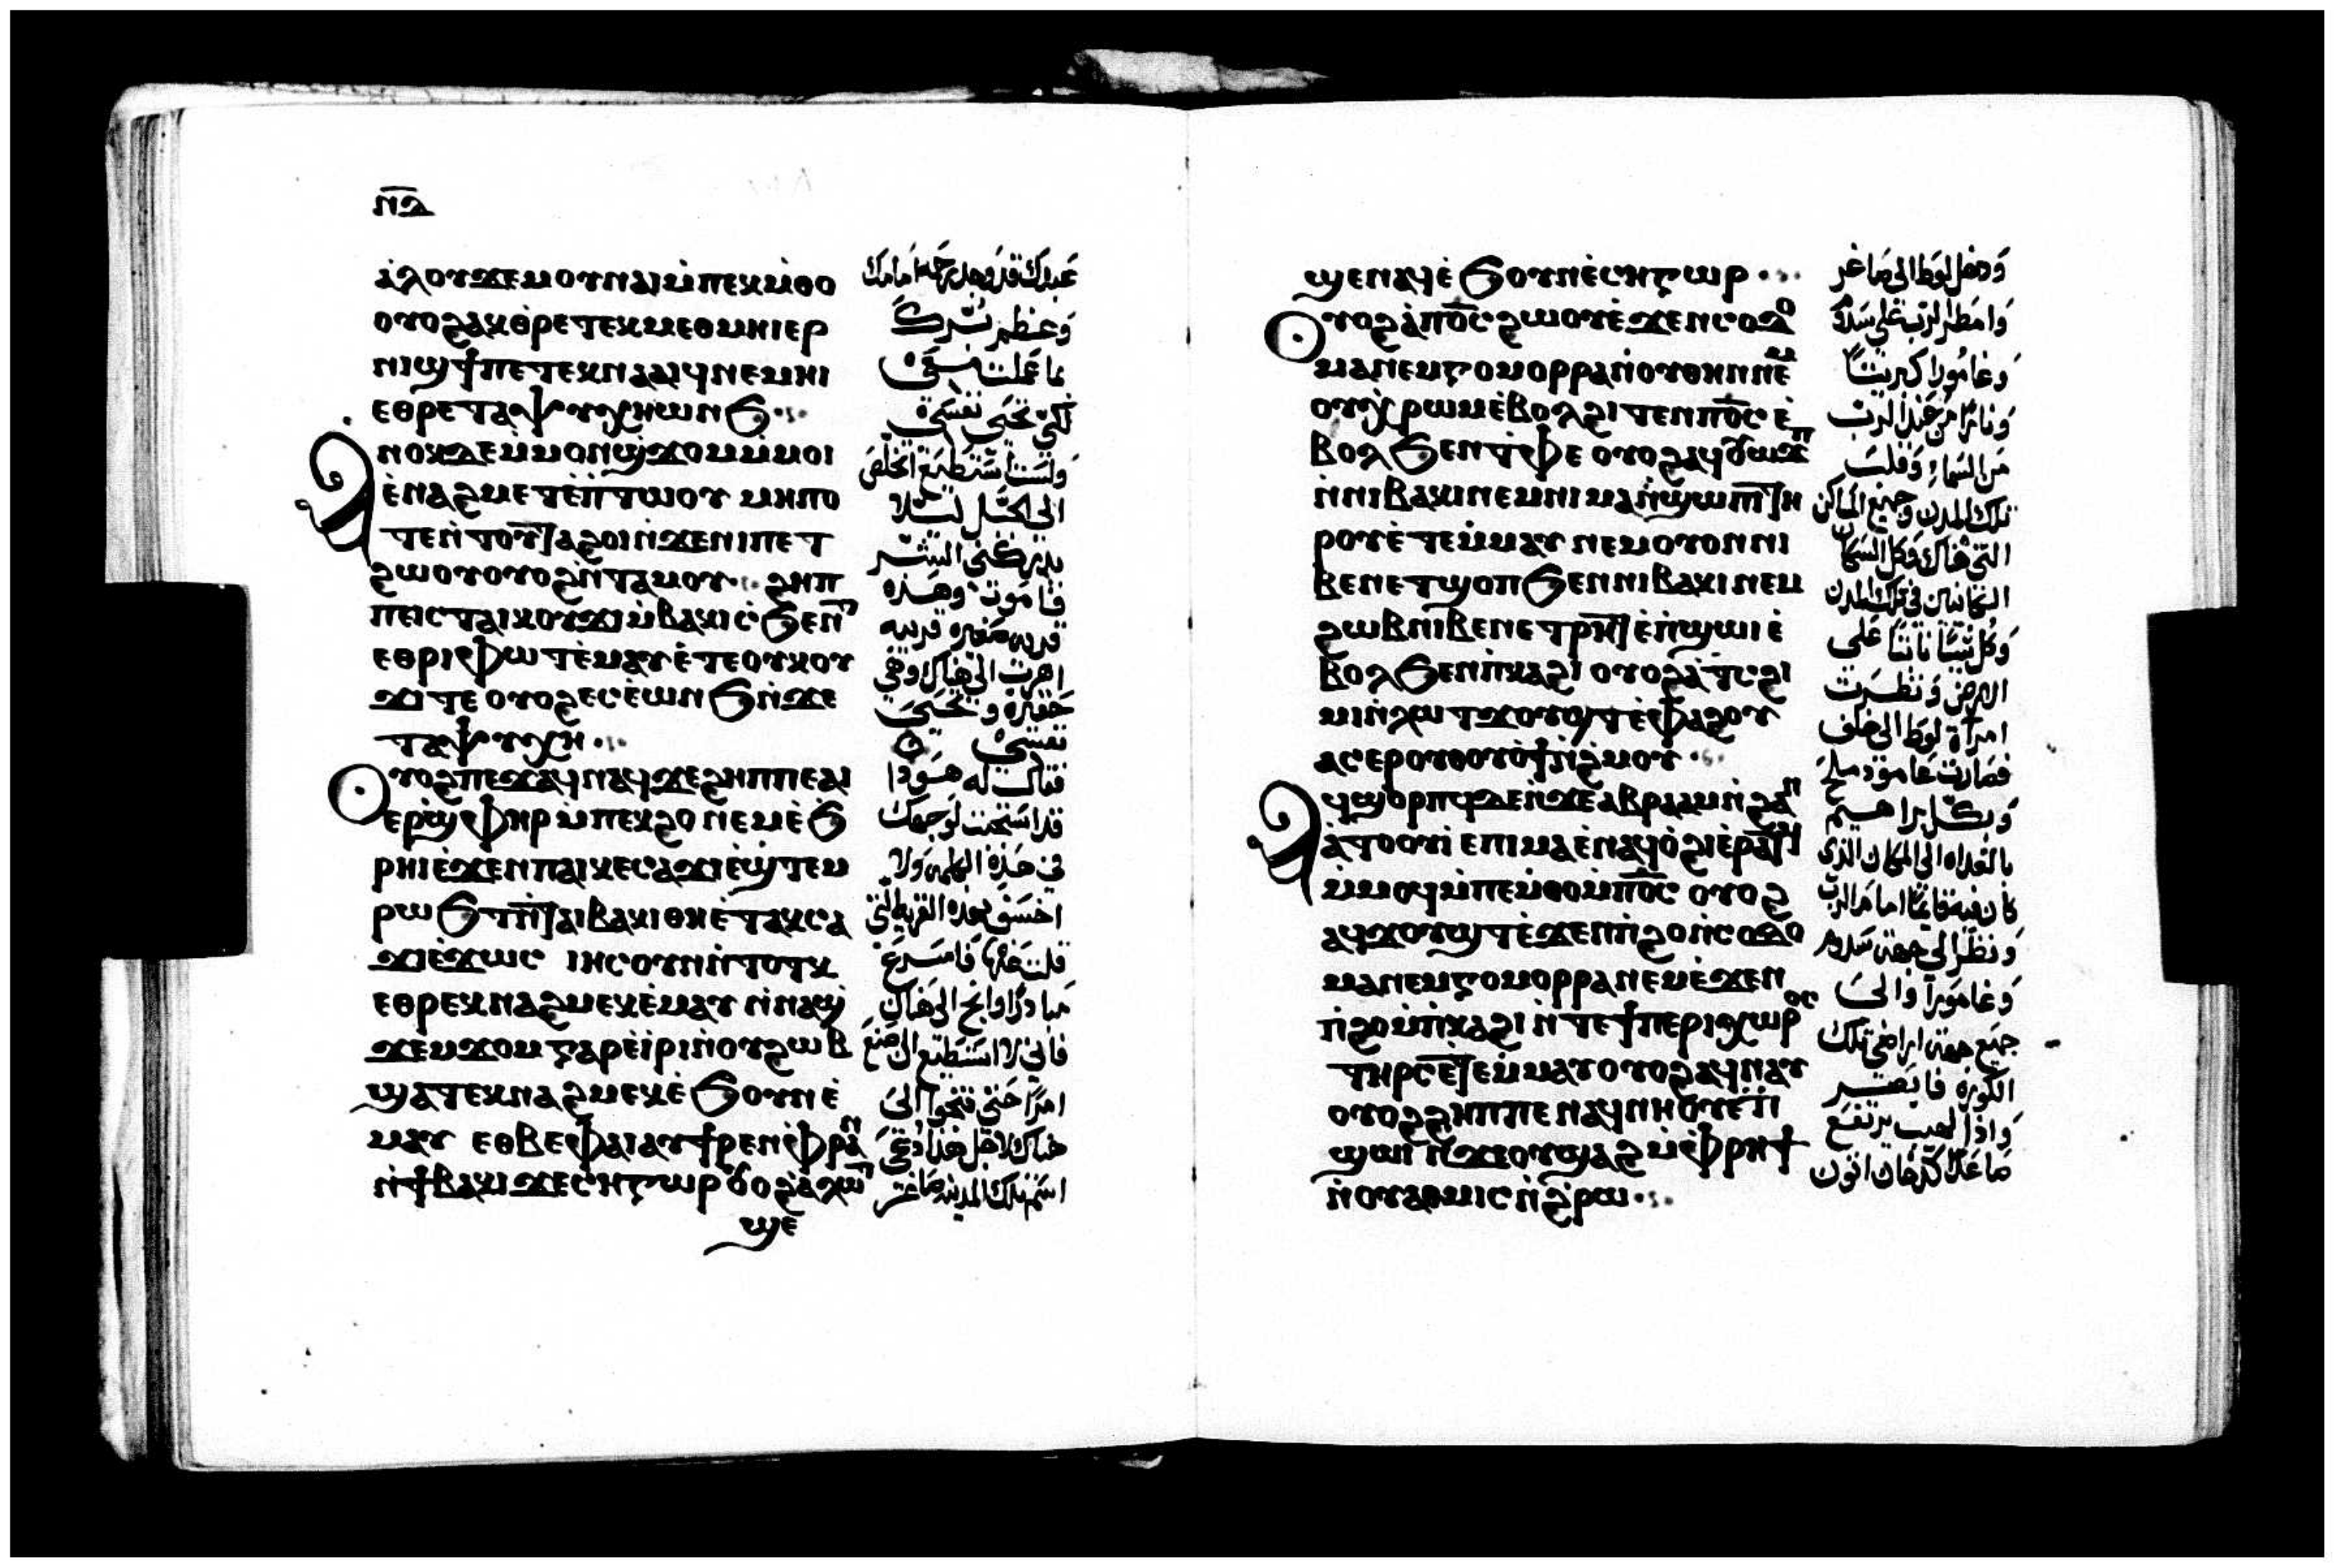 ⲛⲇ
ⲁ̀ⲗⲟⲩϫⲉⲙⲟⲩⲛⲁⲓⲙ̀ⲡⲉⲕⲙ̀ⲑⲟ
ⲟⲩⲟϩⲁⲕⲑ̀ⲣⲉⲧⲉⲕⲙⲉⲑⲙⲏⲓⲉⲣ
ⲛⲓϣϯⲡⲉⲧⲉⲕⲛⲁⲁⲓϥⲛⲉⲙⲏⲓ
ⲉⲑⲣⲉⲧⲁⲯⲩⲭⲏⲱⲛϧ
ⲁⲛⲟⲕⲇⲉⲙ̀ⲙⲟⲛϣ̀ϫⲟⲙⲙ̀ⲙⲟⲓ
ⲉ̀ⲛⲁϩⲙⲉⲧⲉ̀ⲡ̀ⲧⲱⲟⲩ ⲙⲏⲡⲟ
ⲧⲉⲛ̀ⲧⲟⲩⲧⲁϩⲟⲓⲛ̀ϫⲉⲛⲓⲡⲉⲧ
ϩⲱⲟⲩⲟⲩⲟϩⲛ̀ⲧⲁⲙⲟⲩ ϩⲏⲡ
ⲡⲉⲓⲥⲧⲁⲓⲕⲟⲩϫⲓⲙ̀ⲃⲁⲕⲓⲥ̀ϧⲉⲛⲧ
ⲉⲑⲣⲓⲫⲱⲧⲉ̀ⲙⲁⲩⲉ̀ⲧⲉⲟⲩⲕⲟⲩ
ϫⲓⲧⲉ ⲟⲩⲟϩⲉⲥⲉ̀ⲱⲛϧⲛ̀ϫⲉ
ⲧⲁⲯⲩⲭⲏ
ⲟⲩⲟϩⲡⲉϫⲁϥⲛⲁϥϫⲉϩⲏⲡⲡⲉⲁⲓ
ⲉⲣϣ̀ⲫⲏⲣⲙ̀ⲡⲉⲕϩⲟ ⲛⲉⲙⲉ̀ϧ
ⲣⲏⲓⲉ̀ϫⲉⲛⲡⲁⲓⲕⲉⲥⲁϫⲓⲉ̀ϣ̀ⲧⲉⲙ
ⲣⲱϧⲧⲛ̀ⲧⲁⲓⲃⲁⲕⲓⲑⲏⲉ̀ⲧⲁⲕⲥⲁ
ϫⲓⲉ̀ϫⲱⲥ ⲓⲏⲥⲟⲩⲛⲛ̀ⲧⲟⲧⲕ
ⲉⲑⲣⲉⲕⲛⲁϩⲙⲉⲕⲉ̀ⲙⲁⲩ ⲛ̀ⲛⲁϣ̀
ϫⲉⲙϫⲟⲙⲅⲁⲣⲉ̀ⲓⲣⲓⲛ̀ⲟⲩϩⲱⲃ
ϣⲁⲧⲉⲕⲛⲁϩⲙⲉⲕⲉ̀ϧⲟⲩⲛⲉ̀
ⲙⲁⲩ ⲉⲑⲃⲉⲫⲁⲓⲁⲩϯⲣⲉⲛⲫ̀ⲣⲁⲛ
ⲛ̀ϯⲃⲁⲕⲓϫⲉⲥⲏⲅⲱⲣ ⲟⲩⲟϩⲁ̀ⲗⲱⲧ
ϣⲉ
عبدك قد وجد رحمة امامك
وعظم برك
ما عملت معي
لكي تحيى نفسي
ولست استطيع اتخلص
الى الجبل لئلا
يدركني الشر
فاموت وهذه
قرية صغيرة قريبه
اهرب الى هناك وهي
حقيره وتحيى
نفسي
فقال له هوذا
قد استحيت لوجهك
في هذه الكلمه ولا
اخسف بهذه القرية التي
قلت عنها فاسرع
مبادرًا وانج الى هناك
فاني لا استطيع ان اصنع
امرًا حتى تنجوا الى
هناك لاجل هذا دعي
اسم تلك المدينه صاغر
ϣⲉⲛⲁϥⲉ̀ϧⲟⲩⲛⲉ̀ⲥⲏⲅⲱⲣ
ⲟⲩⲟϩⲁ̀ⲡⲟ̅ⲥ̅ϩⲱⲟⲩⲉ̀ϫⲉⲛⲥⲟⲇⲟ
ⲙⲁⲛⲉⲙⲅⲟⲙⲟⲣⲣⲁⲛ̀ⲟⲩⲑⲏⲛⲛⲉⲙ
ⲟⲩⲭ̀ⲣⲱⲙⲉ̀ⲃⲟⲗϩⲓⲧⲉⲛⲡⲟ̅ⲥ̅ⲉ̀
ⲃⲟⲗϧⲉⲛⲧ̀ⲫⲉ ⲟⲩⲟϩⲁϥϭⲱϫⲡ
ⲛ̀ⲛⲓⲃⲁⲕⲓⲛⲉⲙⲛⲓⲙⲁⲛ̀ϣⲱⲡⲓⲧⲏ
ⲣⲟⲩⲉ̀ⲧⲉⲙ̀ⲙⲁⲩ ⲛⲉⲙⲟⲩⲟⲛⲛⲓ
ⲃⲉⲛⲉⲧϣⲟⲡϧⲉⲛⲛⲓⲃⲁⲕⲓⲛⲉⲙ
ϩⲱⲃⲛⲓⲃⲉⲛⲉⲧⲣⲏⲧⲉ̀ⲡ̀ϣⲱⲓⲉ̀
ⲃⲟⲗϧⲉⲛⲡ̀ⲕⲁϩⲓ ⲟⲩⲟϩⲁ̀ⲧ̀ⲥϩⲓ
ⲙⲓⲛ̀ⲗⲱⲧϫⲟⲩϣⲧⲉ̀ⲫⲁϩⲟⲩ
ⲁⲥⲉⲣⲟⲩⲑⲟⲩⲱ̀ϯⲛ̀ϩ̀ⲙⲟⲩ
ⲁϥϣⲟⲣⲡϥⲇⲉⲛ̀ϫⲉⲁⲃⲣⲁⲁⲙⲛ̀ϩⲁⲛ
ⲁ̀ⲧⲟⲟⲩⲓ̀ ⲉⲡⲓⲙⲁⲉ̀ⲛⲁϥⲟ̀ϩⲓⲉ̀ⲣⲁⲧϥ
ⲙ̀ⲙⲟϥⲙ̀ⲡⲉⲙ̀ⲑⲟⲙ̀ⲡⲟ̅ⲥ̅ ⲟⲩⲟϩ
ⲁϥϫⲟⲩϣⲧⲉ̀ϫⲉⲛⲡ̀ϩⲟⲛ̀ⲥⲟⲇⲟ
ⲙⲁⲛⲉⲙⲅⲟⲙⲟⲣⲣⲁⲛⲉⲙⲉ̀ϫⲉⲛ
ⲡ̀ϩⲟⲙ̀ⲡ̀ⲕⲁϩⲓ ⲛ̀ⲧⲉϯⲡⲉⲣⲓⲭⲱⲣⲟⲥ
ⲧⲏⲣⲥⲉ̀ⲧⲉⲙ̀ⲙⲁⲩⲟⲩⲟϩⲁϥⲛⲁⲩ
ⲟⲩⲟϩϩⲏⲡⲡⲉ ⲛⲁϥⲛⲏⲟⲩⲉ̀ⲡ̀
ϣⲱⲓ ⲛ̀ϫⲉⲟⲩϣⲁϩⲙ̀ⲫⲣⲏϯ
ⲛ̀ⲟⲩⲁⲧⲙⲓⲥⲛ̀ϩ̀ⲣⲱ
ودخل لوط الى صاغر
وامطر الرب على سدوم
وغامورا كبريتًا
ونارًا من عند الرب
من السماء وقلب
تلك المدن وجميع الاماكن
التي هناك وكل السكان
الكائنين في تلك المدن
وكل شيئًا نابتًا على
الارض ونظرت
امرأة لوط الى خلف
فصارت عامود ملح
وبكر ابراهيم
بالغداه الى المكان الذي
كان فيه قائمًا امام الرب
ونظر الى جهة سدوم
وغامورا والى
جميع جهة اراضي تلك
الكورة فابصر
واذا لهيب يرتفع
صاعدًا كدخان اتون